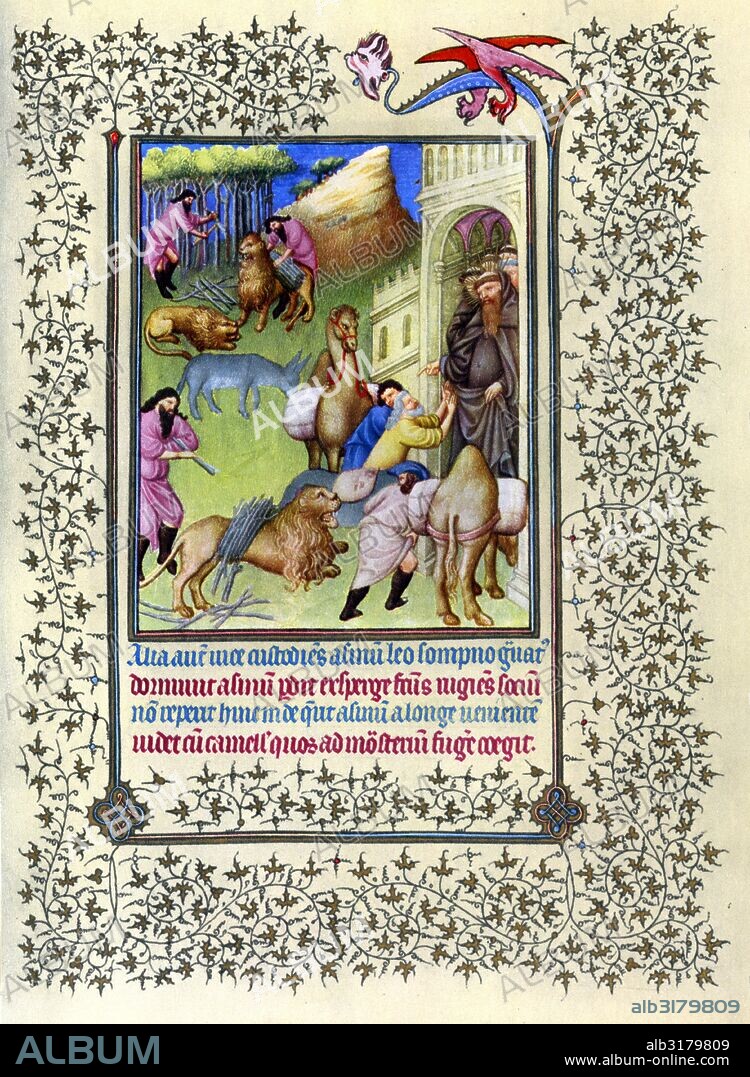 Alia aut̄ vice custodiēs asinū leo sompno g̃uat᷒
dormivit asinū p̱dit exp̱gefactus rugiēs sociū
nō reperit hinc inde q̃rit asinū a longe venientē
videt cū camell᷒ quos ad mōsteriū fug̃e coegit.
alb3179809
ALBUM
alb3179809
www.album-online.com